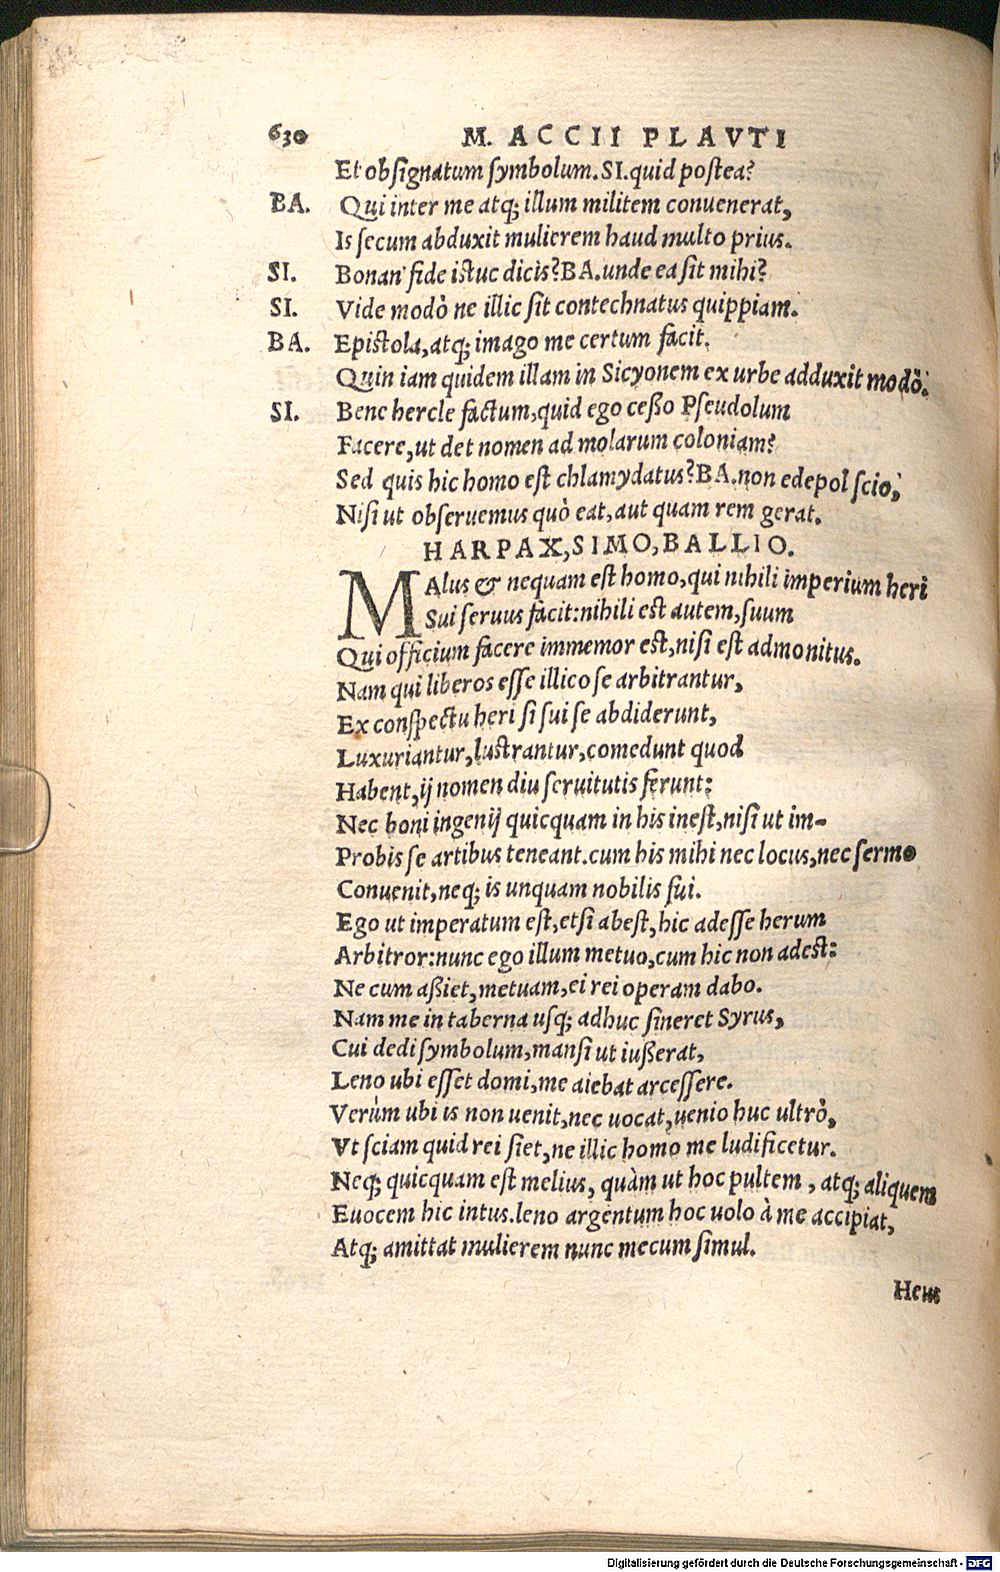 630 M. ACCII PLAVTI
Et obſignatum ſymbolum. SI. quid poſtea?
BA. Qui inter me atq; illum militem conuenerat,
Is ſecum abduxit mulierem haud multo prius.
SI. Bonan' fide iſtuc dicis? BA. unde ea ſit mihi?
SI. Vide modò ne illic ſit contechnatus quippiam.
BA. Epiſtola, atq; imago me certum facit.
Quin iam quidem illam in Sicyonem ex urbe adduxit modò.
SI. Bene hercle factum, quid ego ceßo Pſeudolum
Facere, ut det nomen ad molarum coloniam?
Sed quis hic homo eſt chlamydatus? BA. non edepol ſcio,
Niſi ut obſeruemus quò eat, aut quam rem gerat.
HARPAX, SIMO, BALLIO.
MAlus & nequam eſt homo, qui nihili imperium heri
Sui ſeruus facit: nihili eſt autem, ſuum
Qui officium facere immemor eſt, niſi eſt admonitus.
Nam qui liberos eſſe illico ſe arbitrantur,
Ex conſpectu heri ſi ſui ſe abdiderunt,
Luxuriantur, luſtrantur, comedunt quod
Habent, ij nomen diu ſeruitutis ferunt:
Nec boni ingenij quicquam in his ineſt, niſi ut im-
Probis ſe artibus teneant. cum his mihi nec locus, nec ſermo
Conuenit, neq; is unquam nobilis fui.
Ego ut imperatum eſt, etſi abeſt, hic adeſſe herum
Arbitror: nunc ego illum metuo, cum hic non adeſt:
Ne cum aßiet, metuam, ei rei operam dabo.
Nam me in taberna uſq; adhuc ſineret Syrus,
Cui dedi ſymbolum, manſi ut iußerat,
Leno ubi eſſet domi, me aiebat arceſſere.
Verùm ubi is non uenit, nec uocat, uenio huc ultrò,
Vt ſciam quid rei ſiet, ne illic homo me ludificetur.
Neq; quicquam eſt melius, quàm ut hoc pultem, atq; aliquem
Euocem hic intus. leno argentum hoc uolo à me accipiat,
Atq; amittat mulierem nunc mecum ſimul.
Heus
Digitalisierung gefördert durch die Deutsche Forschungsgemeinschaft - DFG